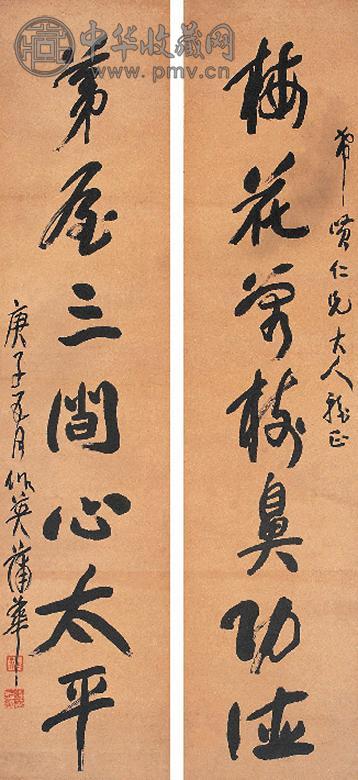 中华收藏网
www.pmv.cn
希賢仁兄大人雅正
梅花萬樹鼻功德
茅屋三間心太平
庚子五月作英蒲華